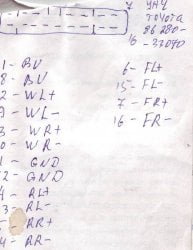 7 УНУ
TOYOTA
86280-
16 -33070
1 - BU
8 - BU
2 - WL+
9 - WL-
3 - WR+
0 - WR-
1 - GND
2 - GND
4 - RL+
3 - RL-
- RR+
4 - RR-
6 - FL+
15 - FL-
7 - FR+
16 - FR-